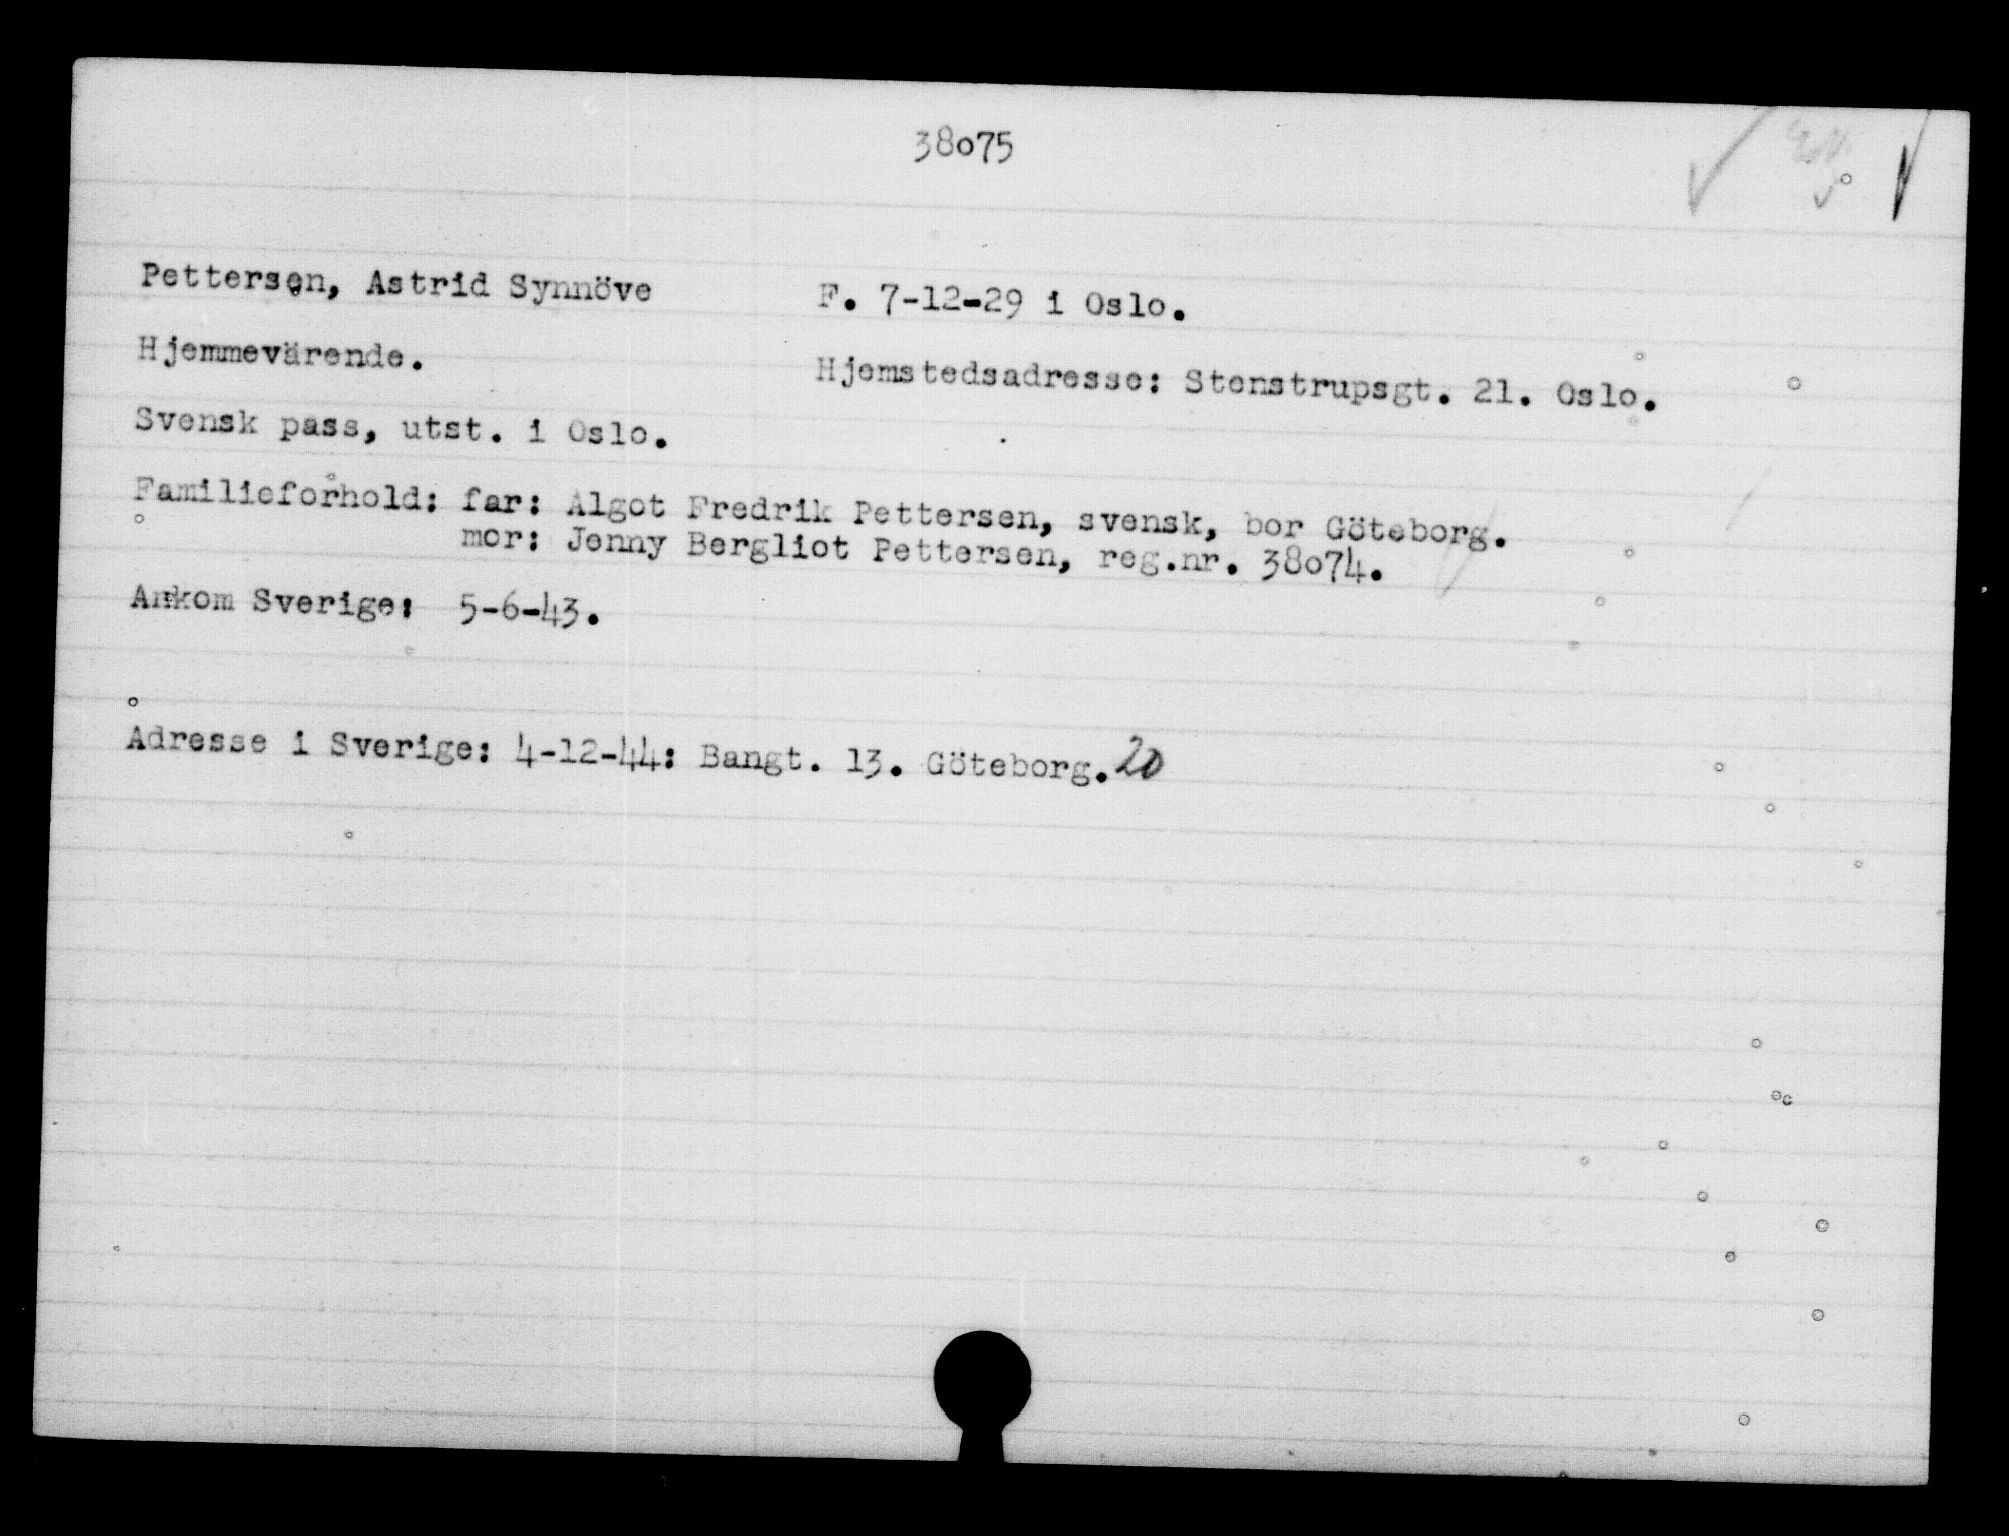 38075
Pettersen, Astrid Synnöve F. 7-12-29 i Oslo.
Hjemmevärende. Hjemstedsadresse: Stenstrupsgt. 21. Oslo.
Svensk pass, utst. i Oslo.
Familieforhold: far: Algot Fredrik Pettersen, svensk, bor Göteborg.
mor: Jenny Bergliot Pettersen, reg.nr. 38074.
Ankom Sverige: 5-6-43.
Adresse i Sverige: 4-12-44: Bangt. 13. Göteborg. 20